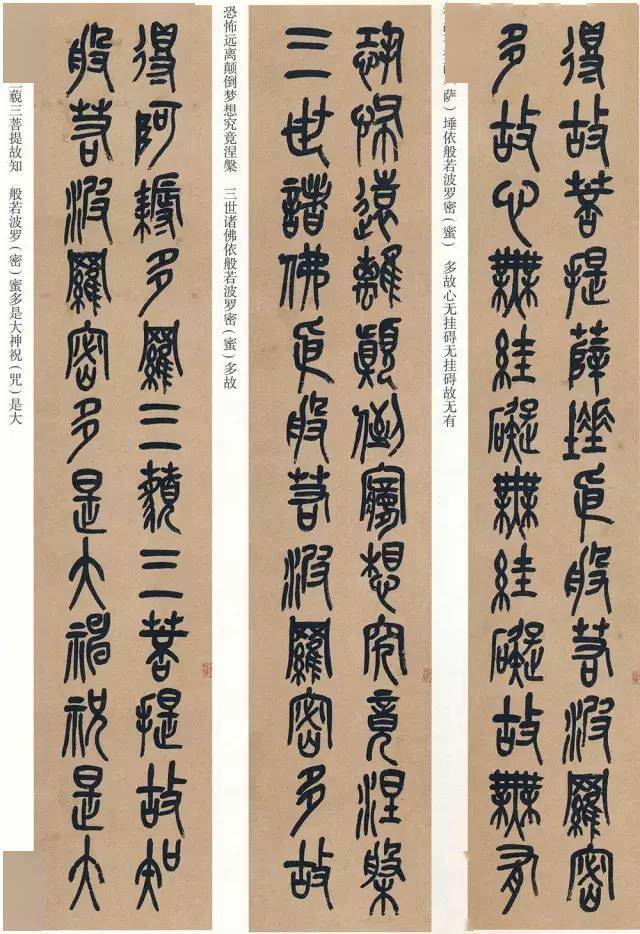 得故菩提薩埵依般若波羅密
多故心無絓礙無絓礙故無有
萨）埵依般若波罗密（蜜） 多故心无挂碍无挂碍故无有
恐怖遠離顛倒夢想究竟涅槃
三世諸佛依般若波羅密多故
恐怖远离颠倒梦想究竟涅槃 三世诸佛依般若波罗密（蜜）多故
得阿耨多羅三藐三菩提故知
般若波羅密多是大神祝是大
藐三菩提故知 般若波罗（密）蜜多是大神祝（咒）是大